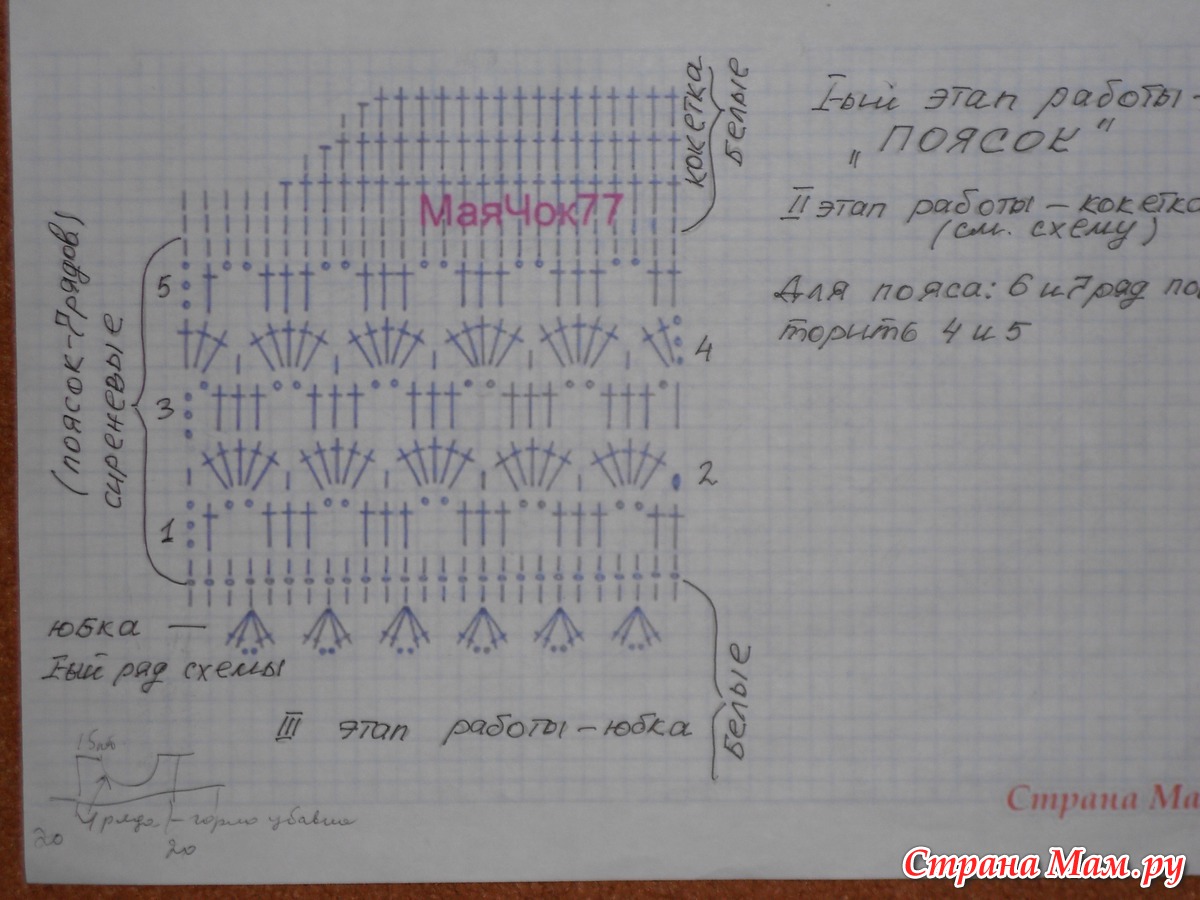 кокетка
Белые
I-ый этап работы-
„ПОЯСОК"
II этап работы – кокетка
(см. схему)
Для пояса: 6 и 7 ряд по
торить 4 и 5
МаяЧок77
(поясок-7рядов)
сиреневые
5
4
3
2
1
юбка —
I-ый ряд схемы
III этап работы – юбка
Белые
20
20
Страна Ма
Страна Мам.ру